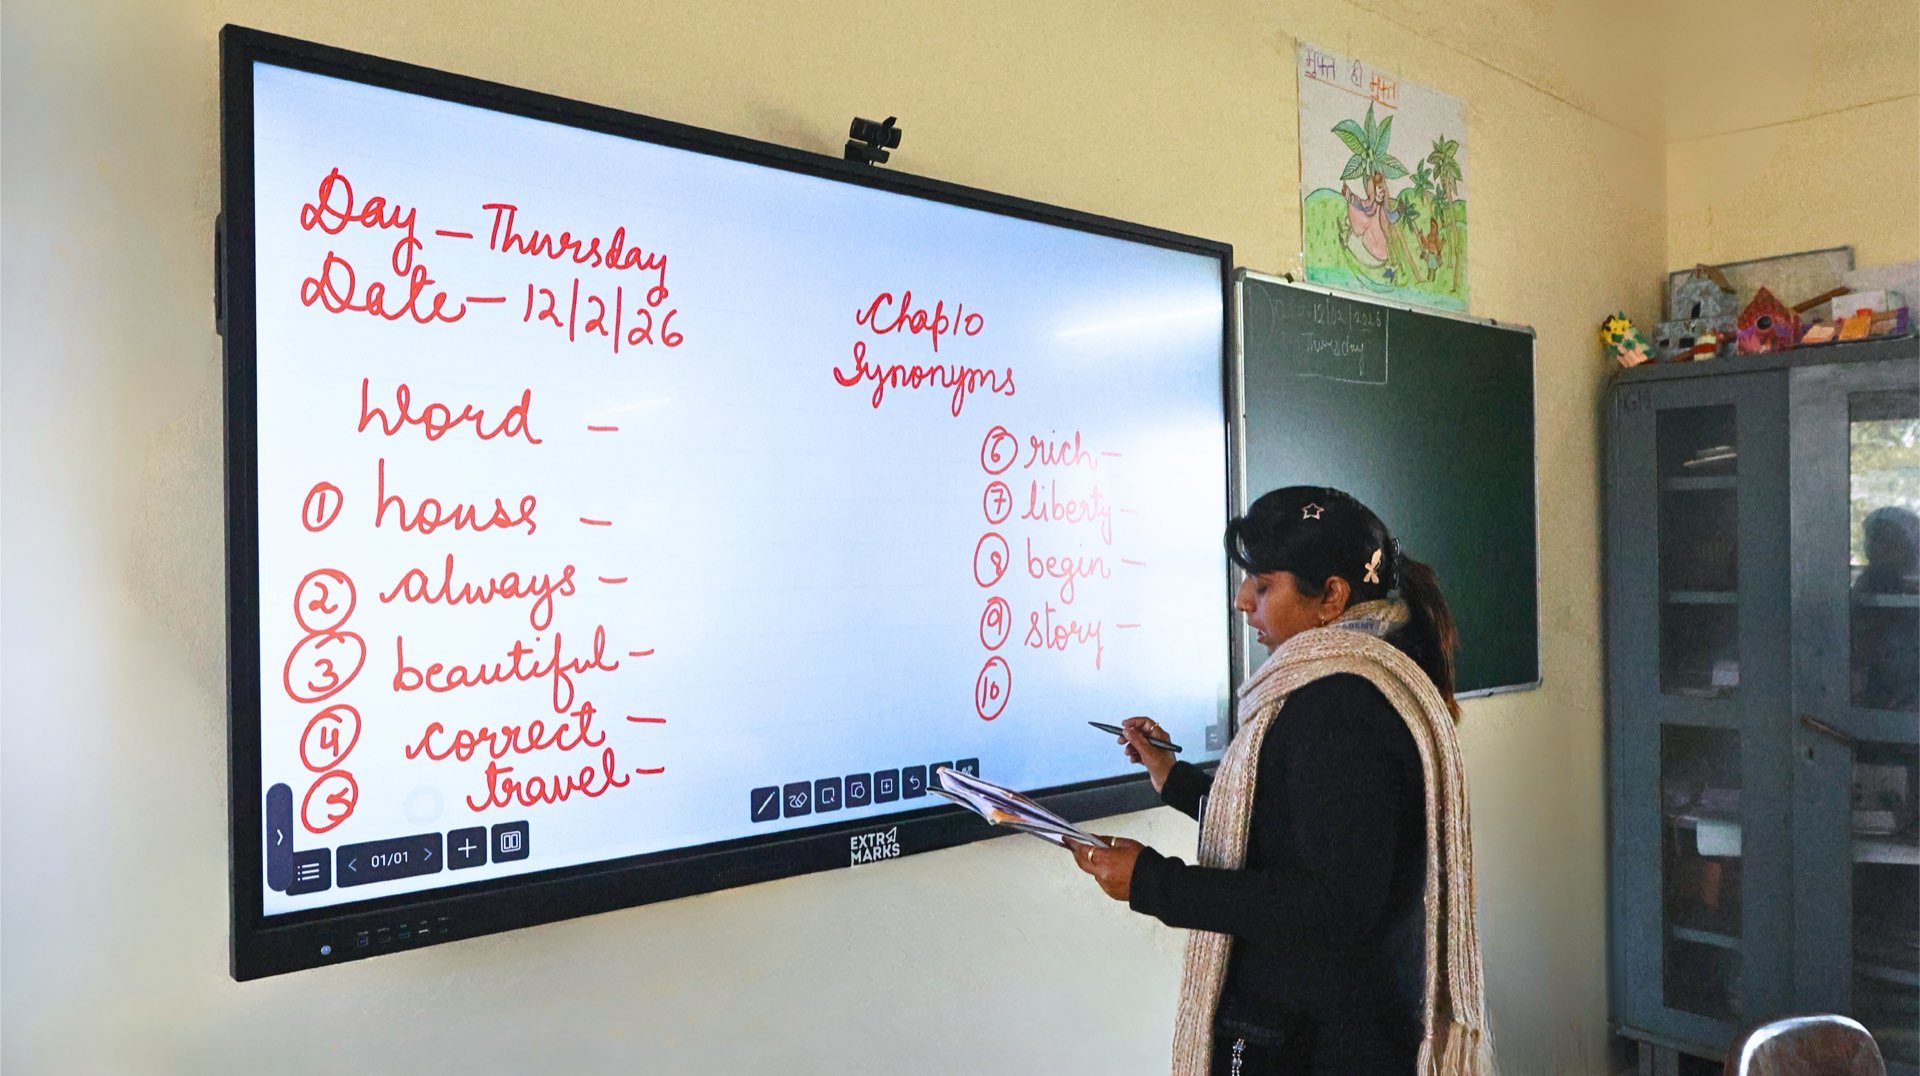 Day – Thursday
Date – 12/2/26
Chap 10
Synonyms
Word –
① house –
② always –
③ beautiful –
④ correct –
⑤ travel –
⑥ rich –
⑦ liberty –
⑧ begin –
⑨ story –
⑩
01/01
EXTRA
MARKS
मुफ्त ही मुफ्त
Date 12/02/2026
Thursday